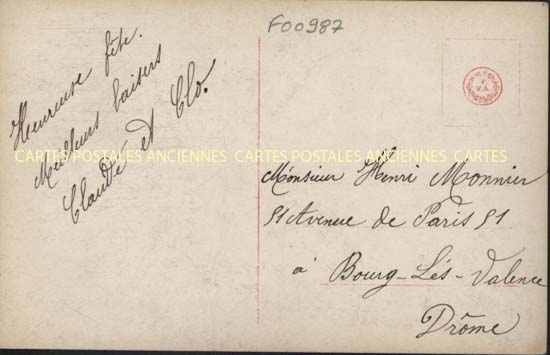 F00987
Heureuse fête.
Meilleurs baisers
Claude et Clo.
V
R.A.
CARTES POSTALES ANCIENNES CARTES POSTALES ANCIENNES CARTES
Monsieur Henri Monnier
51 Avenue de Paris 51
à Bourg-Lés-Valence
Drôme